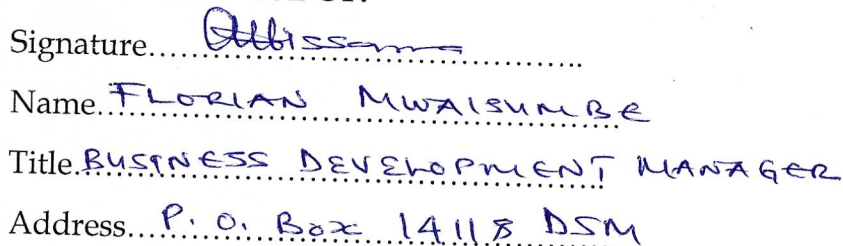 Signature.....
Name. FLORIAN MWAISUMBE
Title. BUSINESS DEVELOPMENT MANAGER
Address... P. O. Box 14118 DSM